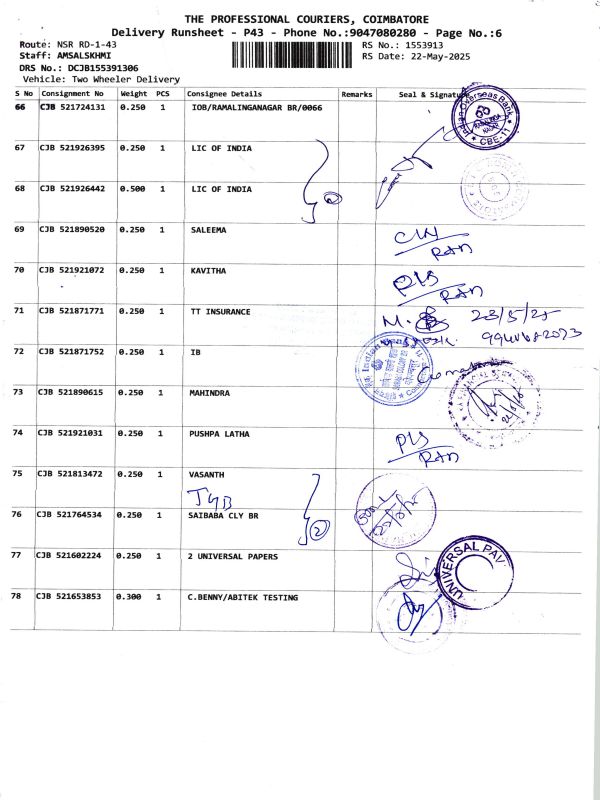 THE PROFESSIONAL COURIERS, COIMBATORE
Delivery Runsheet - P43 - Phone No.:9047080280 - Page No.:6
Route: NSR RD-1-43 RS No.: 1553913
Staff: AMSALSKHMI RS Date: 22-May-2025
DRS No.: DCJB155391306
Vehicle: Two Wheeler Delivery
S No Consignment No Weight PCS Consignee Details Remarks Seal & Signature
66 CJB 521724131 0.250 1 IOB/RAMALINGANAGAR BR/0066
Indian Overseas Bank
CBE-11
67 CJB 521926395 0.250 1 LIC OF INDIA
68 CJB 521926442 0.500 1 LIC OF INDIA
2
69 CJB 521890520 0.250 1 SALEEMA
70 CJB 521921072 0.250 1 KAVITHA
71 CJB 521871771 0.250 1 TT INSURANCE 23/5/25
72 CJB 521871752 0.250 1 IB
73 CJB 521890615 0.250 1 MAHINDRA
74 CJB 521921031 0.250 1 PUSHPA LATHA
75 CJB 521813472 0.250 1 VASANTH
76 CJB 521764534 0.250 1 SAIBABA CLY BR
2
77 CJB 521602224 0.250 1 2 UNIVERSAL PAPERS
UNIVERSAL PAV
78 CJB 521653853 0.300 1 C.BENNY/ABITEK TESTING